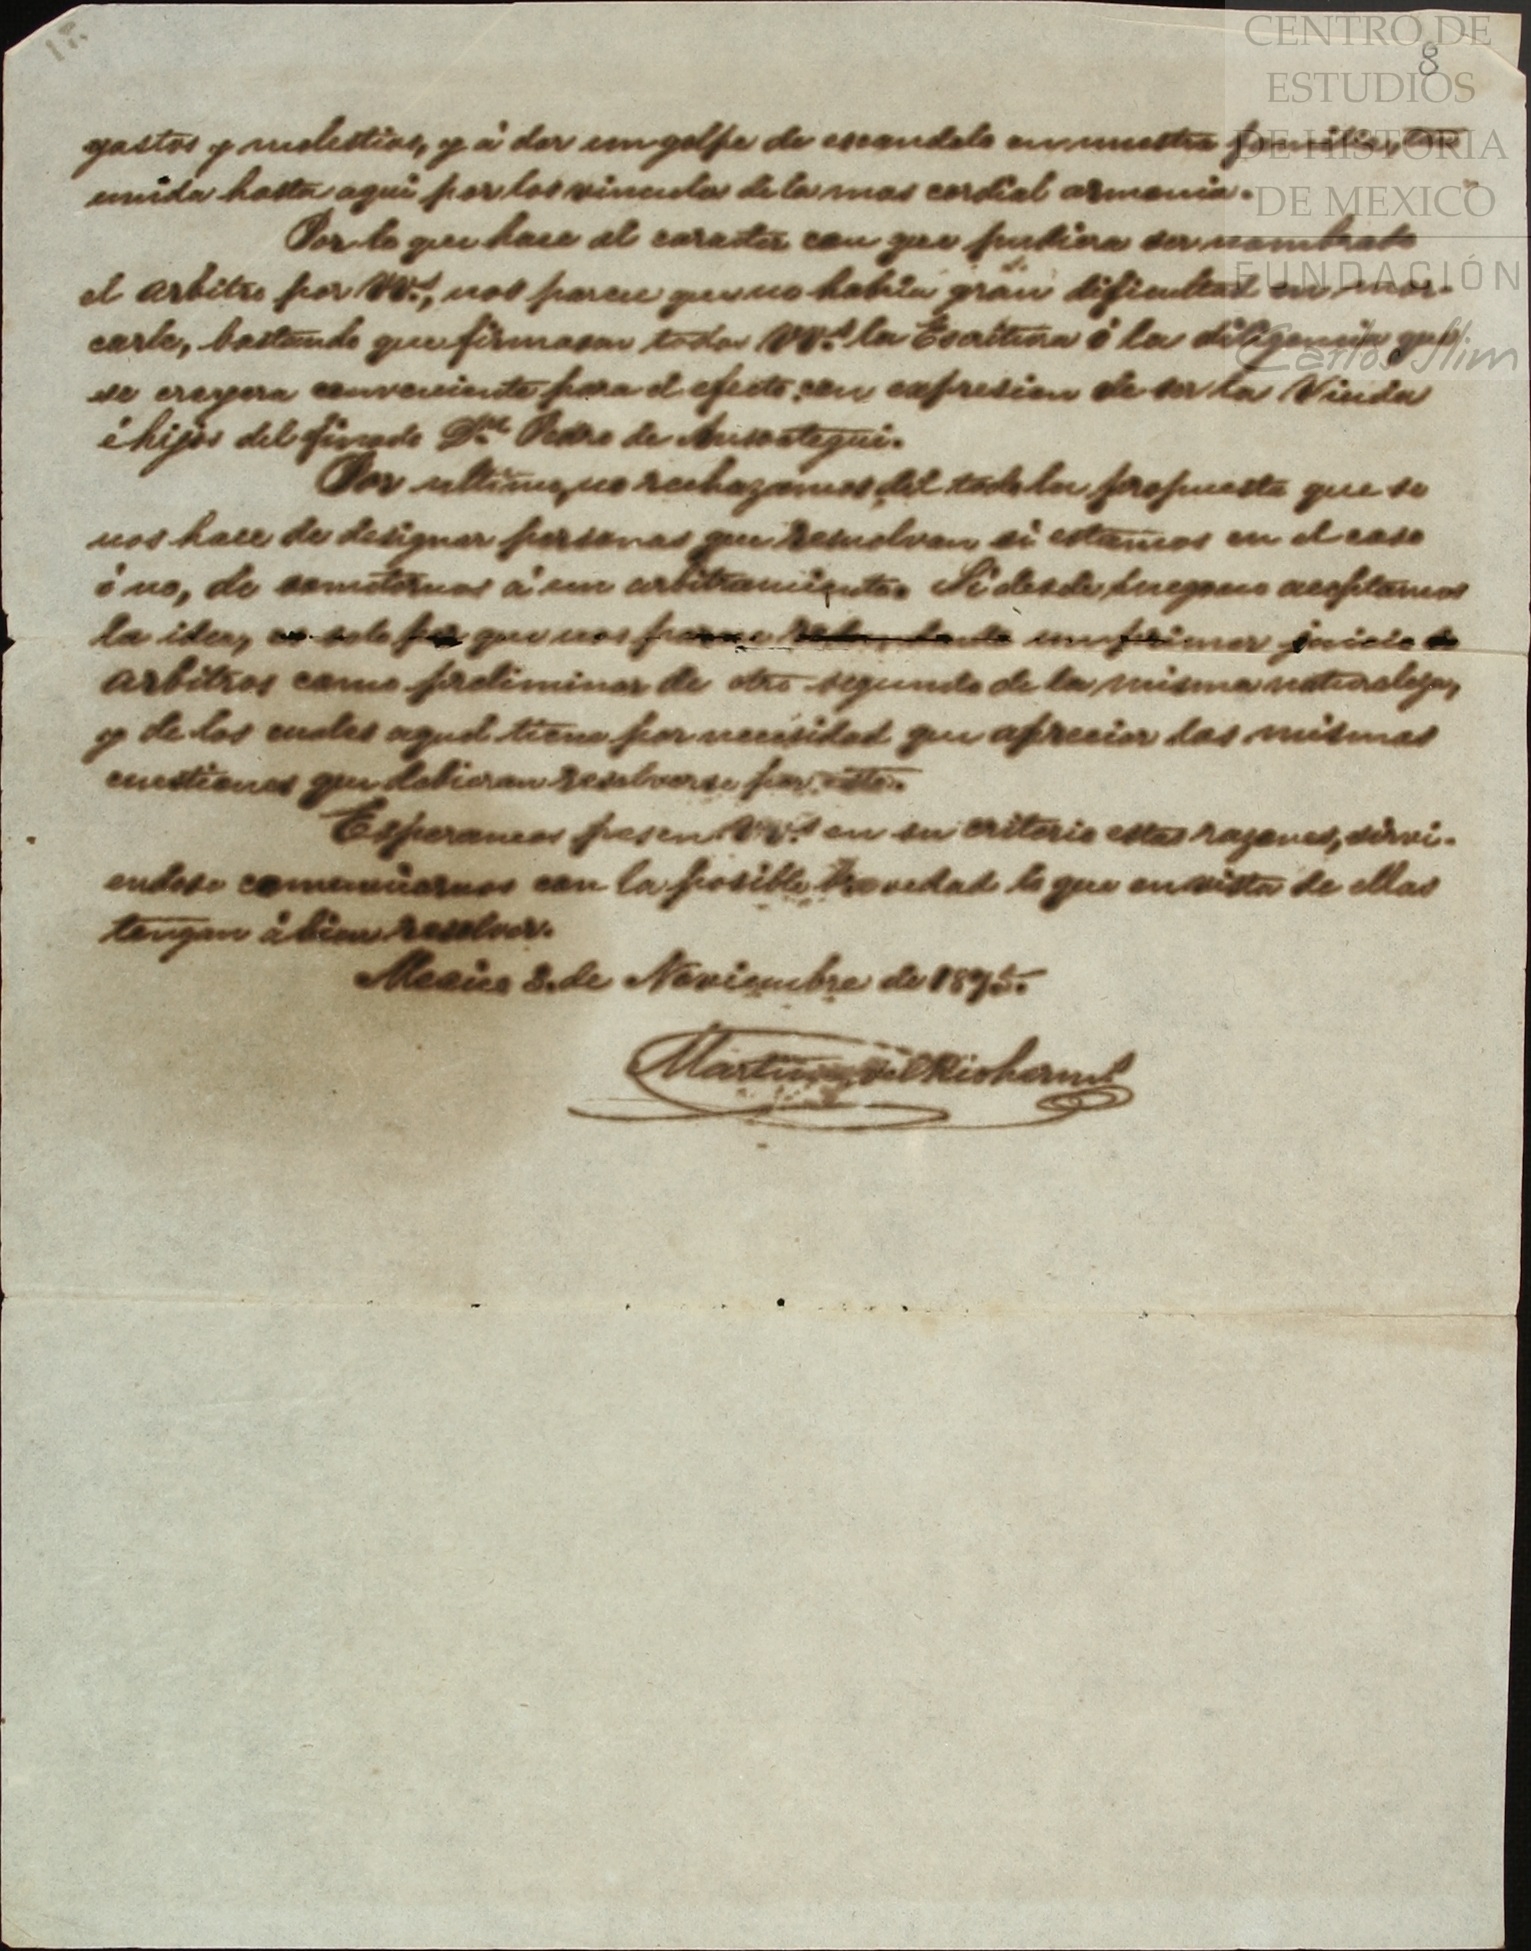 17.
8
CENTRO DE
ESTUDIOS
DE HISTORIA
DE MEXICO
FUNDACIÓN
Carlos Slim
gastos y molestias, y á dar un golpe de escandalo en nuestra familia, tan
unida hasta aqui por los vinculos de la mas cordial armonia.
Por lo que hace al caracter con que pudiera ser nombrado
el arbitro por VV.s, nos parece que no habria gran dificultad en mar-
carle, bastando que firmasen todos VV.s la Escritura ó la diligencia que
se creyera conveniente para el efecto con expresion de ser la Viuda
é hijos del finado Dn. Pedro de Ansoategui.
Por ultimo, no rechazamos del todo la propuesta que se
nos hace de designar personas que resuelvan si estamos en el caso
ó no, de someternos á un arbitramiento. Si desde luego no aceptamos
la idea, es solo por que nos parece redundante un primer juicio de
arbitros como preliminar de otro segundo de la misma naturaleza,
y de los cuales aquel tiene por necesidad que apreciar las mismas
cuestiones que debieran resolverse por este.
Esperamos pesen VV.s en su criterio estas razones, sirvi-
endose comunicarnos con la posible brevedad lo que en vista de ellas
tengan á bien resolver.
Mexico 3. de Noviembre de 1875.
Martinez del Rio herms